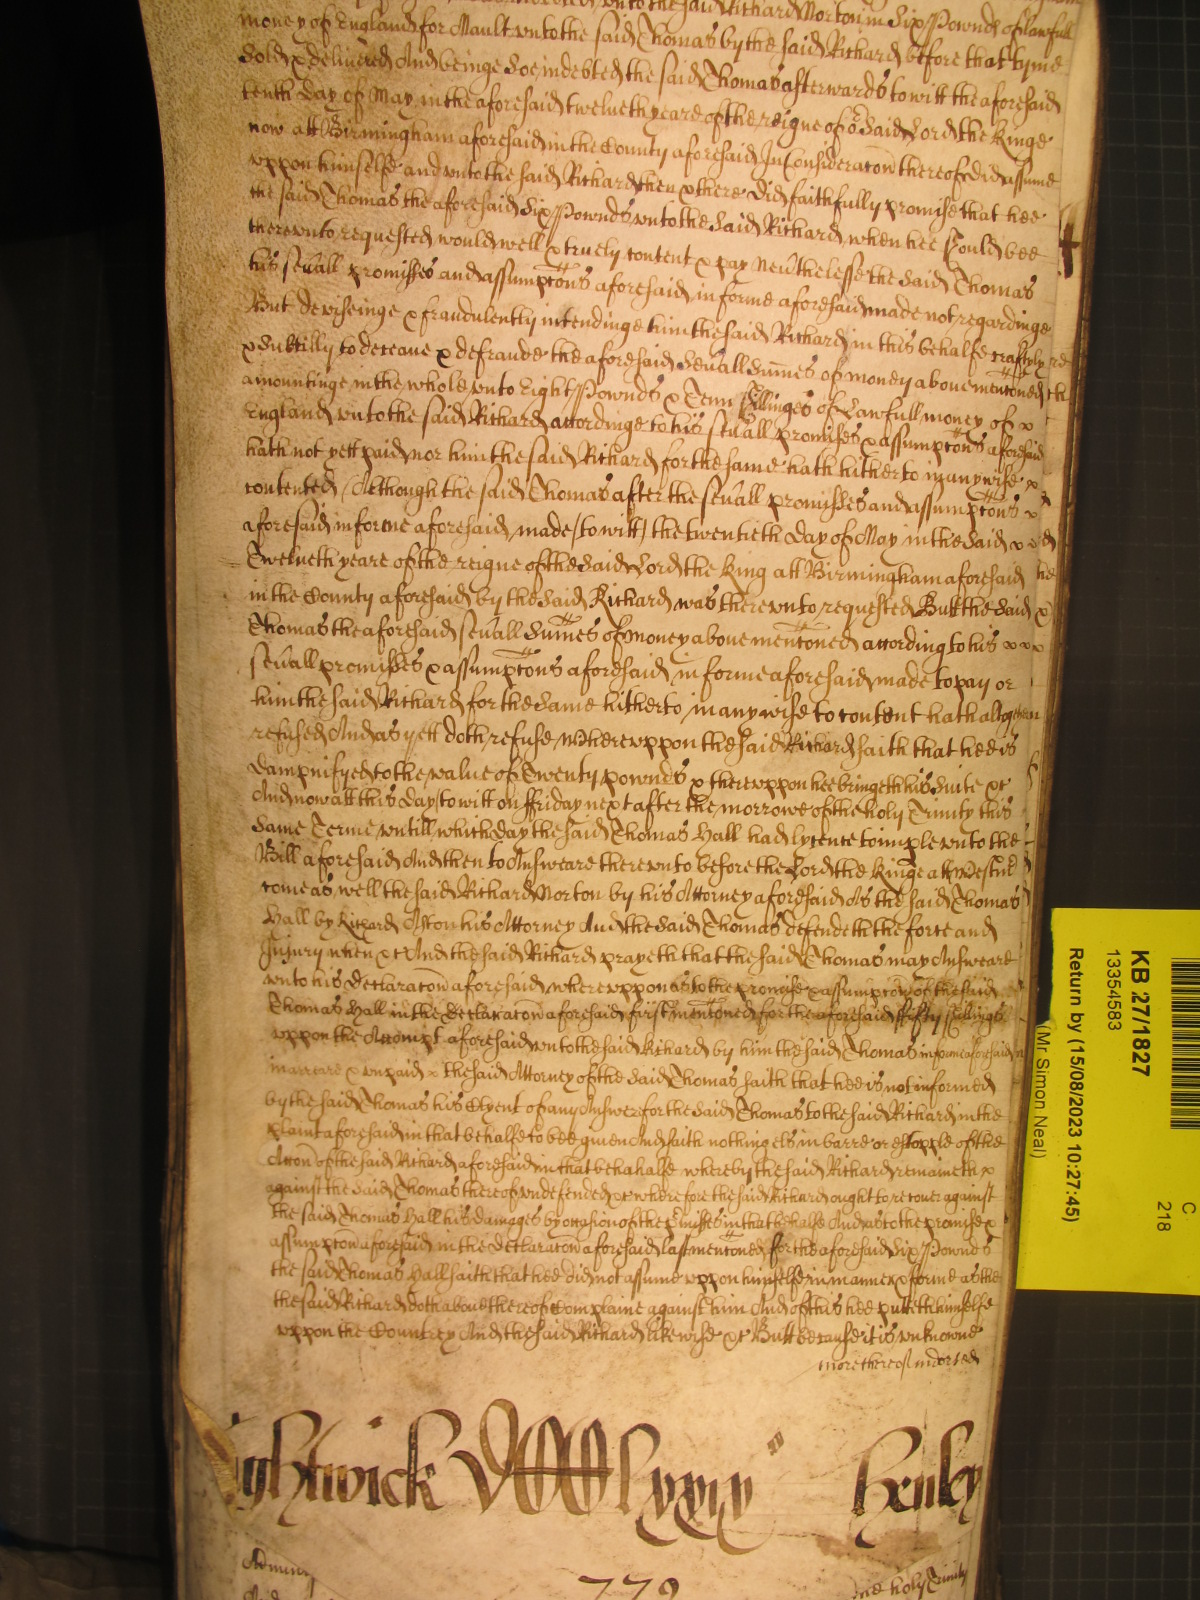 vnto the said Richard Morton in Six Pownds of lawfull
money of England for Mault vnto the said Thomas by the said Richard before that tyme
Sold & delivered And beinge soe indebted the said Thomas afterwards to witt the aforesaid
tenth day of May in the aforesaid twelueth yeare of the reigne of or said Lord the Kinge
now att Birmingham aforesaid in the County aforesaid In Consideracon thereof did assume
vppon himselfe and vnto the said Richard then & there did faithfully promise that hee
the said Thomas the aforesaid Six Pownds vnto the said Richard when hee should bee
therevnto requested would well & truely content & pay Neuthelesse the said Thomas
his seuall promisses and assumptons aforesaid in forme aforesaid made not regardinge
But deviseinge & fraudulently intendinge him the said Richard in this behalfe craftyly
& subtilly to deceaue & defraude the aforesaid seuall summes of money aboue mentoned
amountinge in the whole vnto Eight Pownds & Tenn Shillinges of Lawfull money of x
England vnto the said Richard accordinge to his seuall promisses & assumptons aforesaid
hath not yett paid nor him the said Richard for the same hath hitherto in any wise x
contented Although the said Thomas after the seuall promisses and assumptons x
aforesaid in forme aforesaid made (to witt) the twentieth day of May in the said x x
Twelueth yeare of the reigne of the said Lord the King att Birmingham aforesaid
in the County aforesaid by the said Richard was therevnto requested But the said x
Thomas the aforesaid seuall summes of money aboue mentoned according to his x x x
seuall promisses & assumptons aforesaid in forme aforesaid made to pay or
him the said Richard for the same hitherto in any wise to content hath altogether
refused And as yett doth refuse Wherevppon the said Richard saith that hee is
dampnifyed to the value of Twenty pownds & therevppon hee bringeth his suite &c
And now att this day to witt on ffriday next after the morrowe of the holy Trinity this
same Terme vntill which day the said Thomas Hall had lycence to imple vnto the
Bill aforesaid And then to Answeare therevnto before the Lord the Kinge att Westm
come as well the said Richard Morton by his Attorney aforesaid As the said Thomas
Hall by Richard Aston his Attorney And the said Thomas defendeth the force and
Injury when &c And the said Richard prayeth that the said Thomas may Answeare
vnto his declaracon aforesaid wherevppon as to the promise & assumpton of the said
Thomas Hall in the declaracon aforesaid first mentoned for the aforesaid ffifty shillings
vppon the Attompt aforesaid vnto the said Richard by him the said Thomas in forme aforesaid
in arreare & vnpaid x the said Attorney of the said Thomas saith that hee is not informed
by the said Thomas his Clyent of any Answere for the said Thomas to the said Richard in the
plaint aforesaid in that behalfe to bee giuen And saith nothing els in barre or estopple of the
Accon of the said Richard aforesaid in that behalfe whereby the said Richard remaineth x
against the said Thomas thereof vndefended &c wherefore the said Richard ought to recouer against
the said Thomas Hall his damages by occasion of the pmisses in that behalfe And as to the promise &
assumpton aforesaid in the declaracon aforesaid last mentoned for the aforesaid Six Pownds
the said Thomas Hall saith that hee did not assume vppon himselfe in manner & forme as the
the said Richard doth aboue thereof Complaine against him And of this hee putteth himselfe
vppon the Countrey And the said Richard likewise &c But because it is vnknowne
more thereof indorsed
Henley
holy Trinity
KB 27/1827
13354583
Return by (15/08/2023 10:27:45)
(Mr Simon Neal)
C
218